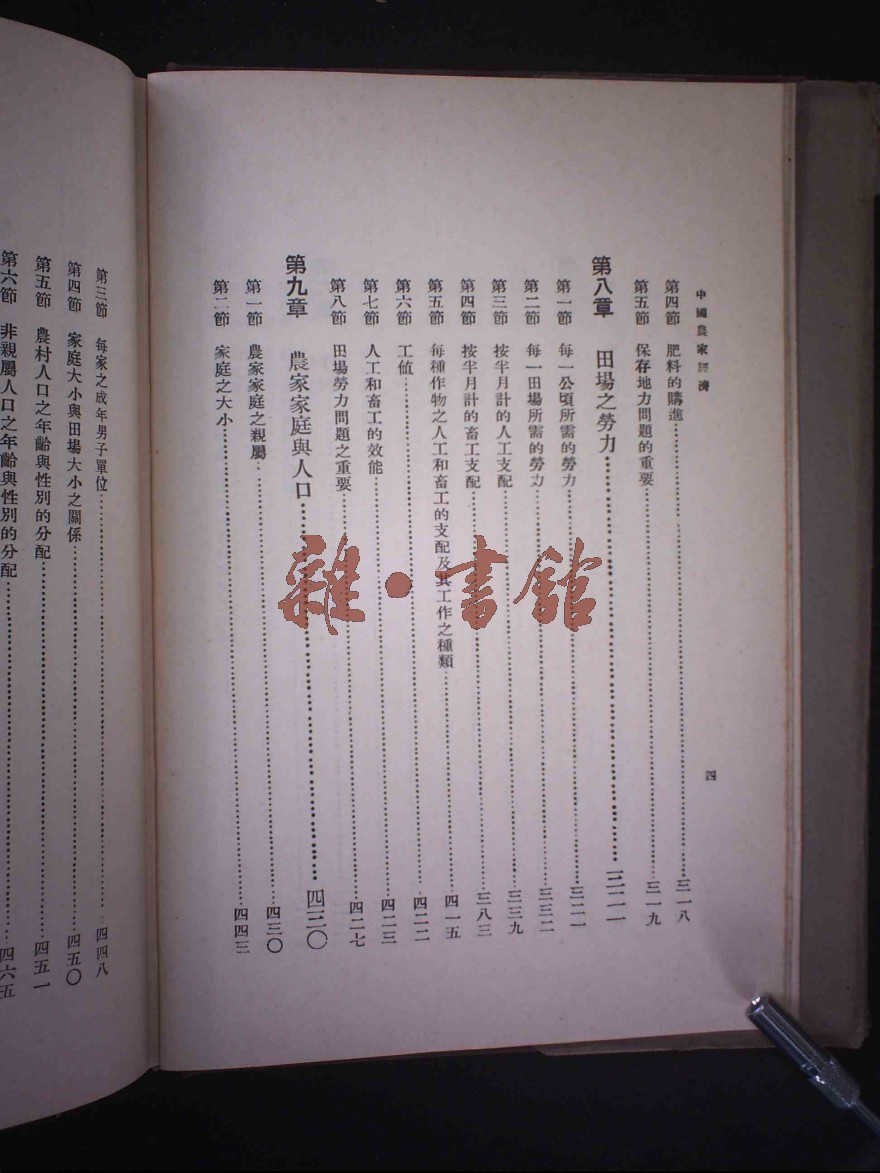 中國農家經濟
四
第四節 肥料的購進……三一八
第五節 保存地力問題的重要……三一九
第八章 田場之勞力……三二一
第一節 每一公頃所需的勞力……三二一
第二節 每一田場所需的勞力……三三二
第三節 按半月計的人工支配……三三九
第四節 按半月計的畜工支配……三八三
第五節 每種作物之人工和畜工的支配及其工作之種類……四一五
第六節 工值……四二二
第七節 人工和畜工的效能……四二三
第八節 田場勞力問題之重要……四二七
第九章 農家家庭與人口……四三〇
第一節 農家家庭之親屬……四三〇
第二節 家庭之大小……四四三
第三節 每家之成年男子單位……四四八
第四節 家庭大小與田場大小之關係……四五〇
第五節 農村人口之年齡與性別的分配……四五一
第六節 非親屬人口之年齡與性別的分配……四六五
雜·書館